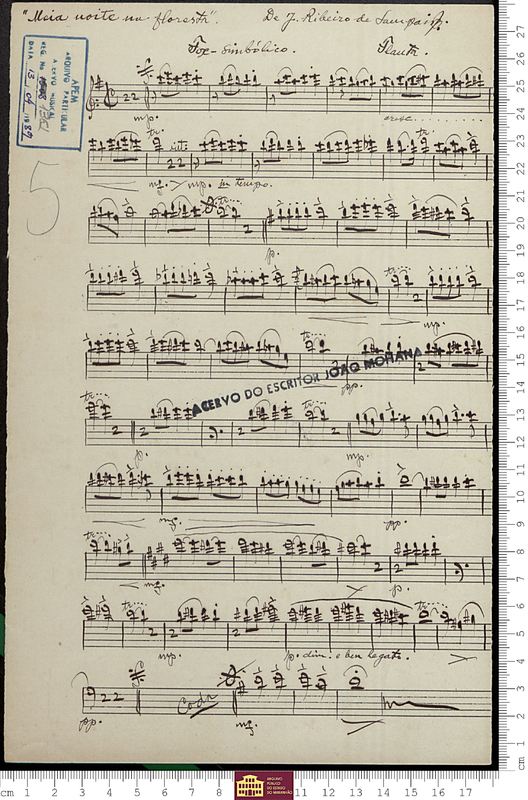 "Meia noite na floresta". De J. Ribeiro de Sampaio.
Fox-simbólico. Flauta.
APEM
ARQUIVO PARTICULAR
ACERVO MUSICAL
REG. No
DATA 13 04
5
mp. cresc.
tr.
mg. mp. in tempo.
tr.
p.
tr.
mp.
tr.
ACERVO DO ESCRITOR JOÃO MOHANA
pp.
tr. tr.
p. mp.
mg. pp.
tr.
mg. p.
tr. tr.
mp. p. dim. e ben legato.
Coda
pp. mg.
ARQUIVO
PÚBLICO
DO ESTADO
DO MARANHÃO
cm 1 2 3 4 5 6 7 8 11 12 13 14 15 16 17
27
26
25
24
23
22
21
20
19
18
17
16
15
14
13
12
11
10
9
8
7
6
5
4
3
2
1
cm